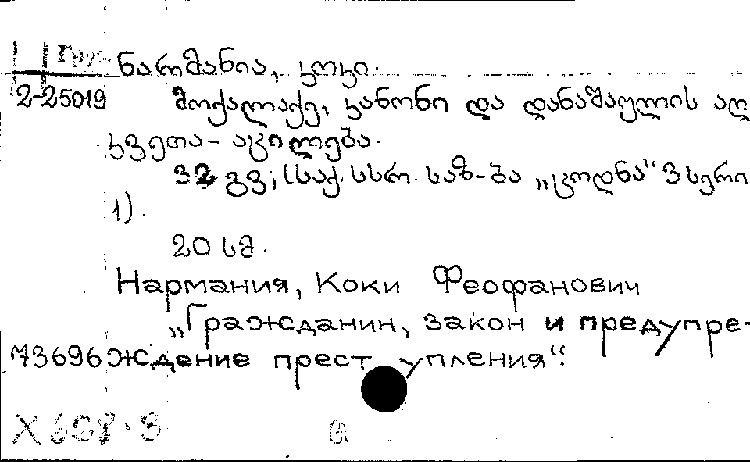 Груз
ნარმანია, კოკი.
2-25019 მოქალაქე, კანონი და დანაშაულის აღ
კვეთა - აცილება.
32 გვ; (საქ. სსრ. საზ-ბა „ცოდნა“ 3 სერი
1).
20 სმ.
Нармания, Коки Феофанович
„Гражданин, закон и предупре-
73696 ждение преступления“.